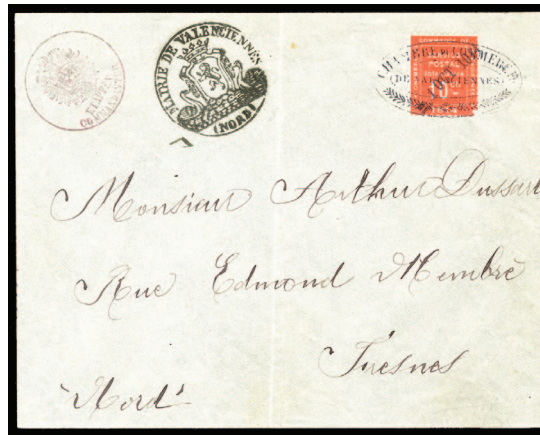 MAIRIE DE VALENCIENNES
(NORD)
CHAMBRE DE COMMERCE
(DE VALENCIENNES)
POSTAL
10
Monsieur Arthur Dussart
Rue Edmond Membré
Fresnes
"Nord"